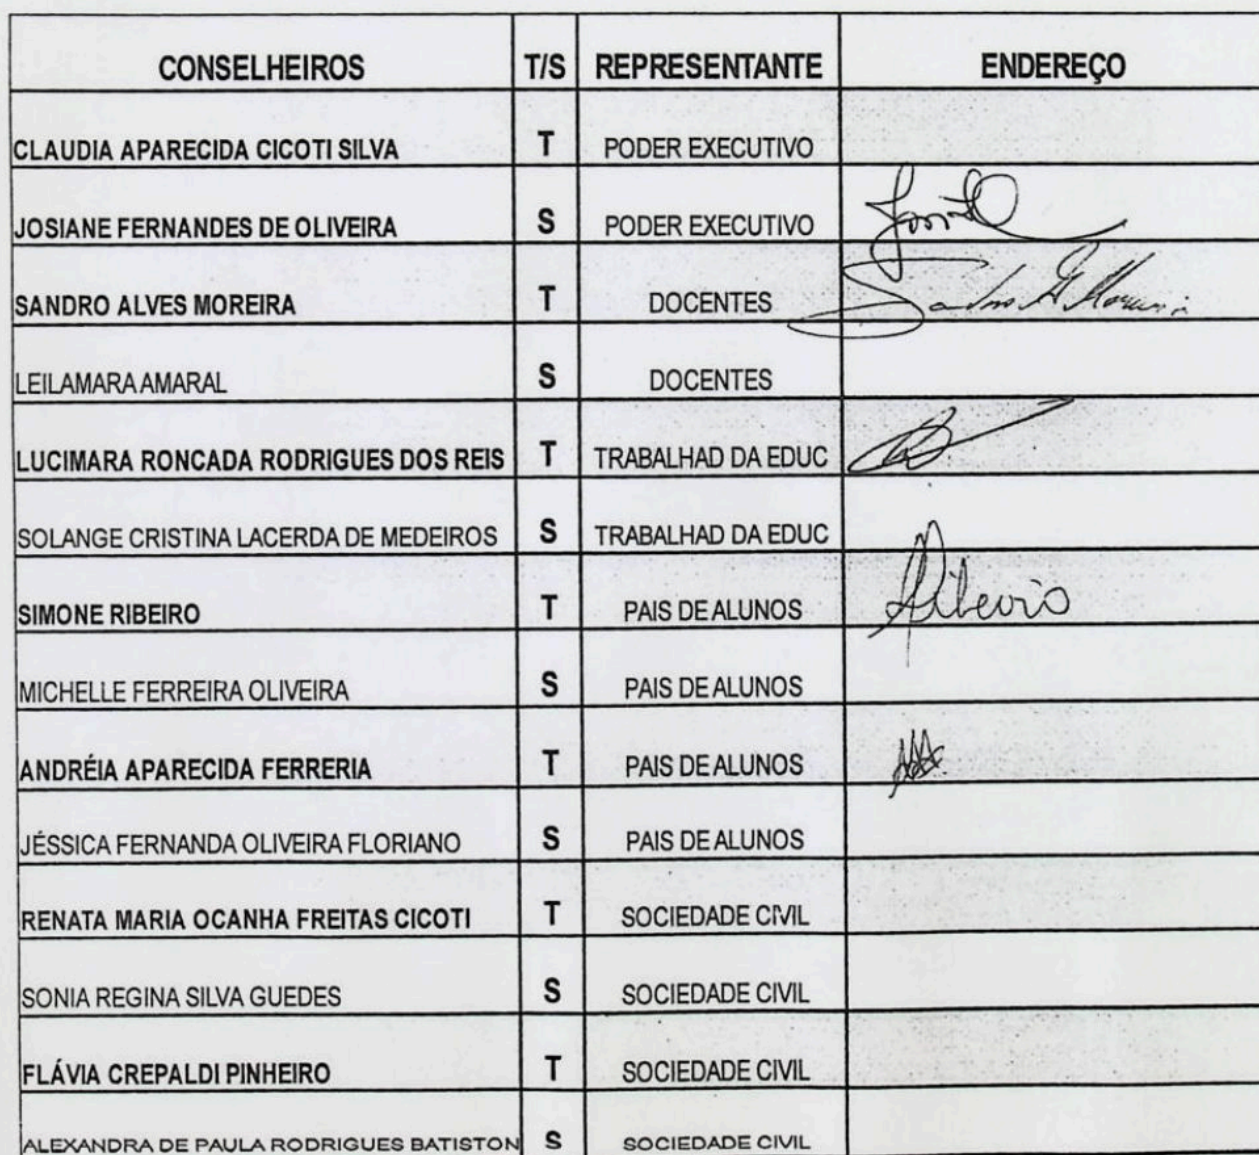 CONSELHEIROS T/S REPRESENTANTE ENDEREÇO
CLAUDIA APARECIDA CICOTI SILVA T PODER EXECUTIVO
JOSIANE FERNANDES DE OLIVEIRA S PODER EXECUTIVO
SANDRO ALVES MOREIRA T DOCENTES Sandro A Moreira
LEILAMARA AMARAL S DOCENTES
LUCIMARA RONCADA RODRIGUES DOS REIS T TRABALHAD DA EDUC
SOLANGE CRISTINA LACERDA DE MEDEIROS S TRABALHAD DA EDUC
SIMONE RIBEIRO T PAIS DE ALUNOS Ribeiro
MICHELLE FERREIRA OLIVEIRA S PAIS DE ALUNOS
ANDRÉIA APARECIDA FERRERIA T PAIS DE ALUNOS
JÉSSICA FERNANDA OLIVEIRA FLORIANO S PAIS DE ALUNOS
RENATA MARIA OCANHA FREITAS CICOTI T SOCIEDADE CIVIL
SONIA REGINA SILVA GUEDES S SOCIEDADE CIVIL
FLÁVIA CREPALDI PINHEIRO T SOCIEDADE CIVIL
ALEXANDRA DE PAULA RODRIGUES BATISTON S SOCIEDADE CIVIL